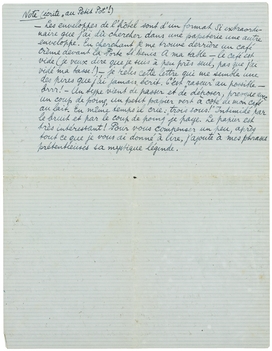 Note (écrite, au Petit Pot !)
— Les enveloppes de l'hôtel sont d'un format si extraordi-
naire que j'ai dû chercher dans une papeterie une autre
enveloppe. En cherchant je me trouve derrière un café
crème devant la Porte St Denis. À ma table — le café est
vide (je veux dire que je suis à peu près seul, pas que j'ai
vidé ma tasse !) — je relis cette lettre que me semble une
des pires que j'ai jamais écrit, est-ce possible —
brrr ! — Un type vient de passer et de déposer,
un coup de poing, un petit papier vert à côté de mon café
au lait. En même temps il crie, trois sous ! Intimidé par
le bruit et par le coup de poing je paye. Le papier est
très intéressant ! Pour vous compenser un peu, après
tout ce que je vous ai donné à lire, j'ajoute à mes phrases
prétentieuses sa mystique légende.